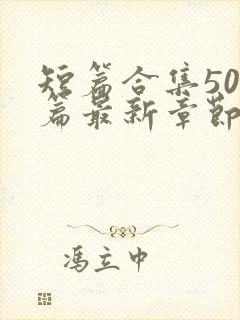 短篇合集50
篇最新章节
冯立中